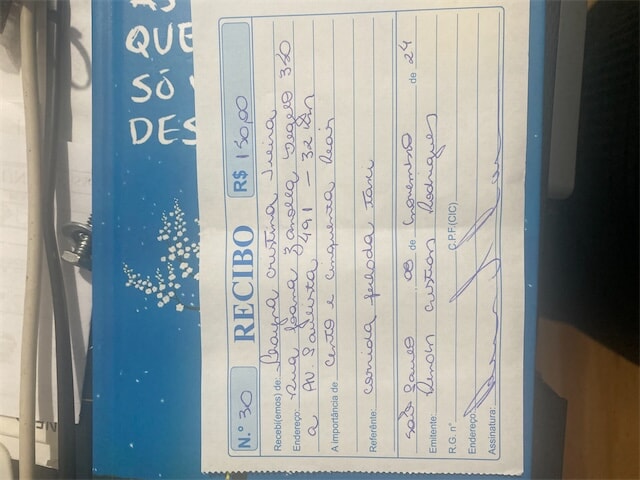 AS
QUE
SÓ V
DES
N.º 30 RECIBO R$ 150,00
Recebi(emos) de: Cristina Vieira
Endereço: Rua Joana 320
a Av. Paulista 491 - 32
A importância de Cento e cinquenta reais
Referente: corrida fechada taxi
São Paulo 08 de novembro de 24
Emitente: Ramon Cristian Rodrigues
R.G. nº C.P.F.(CIC)
Endereço
Assinatura: